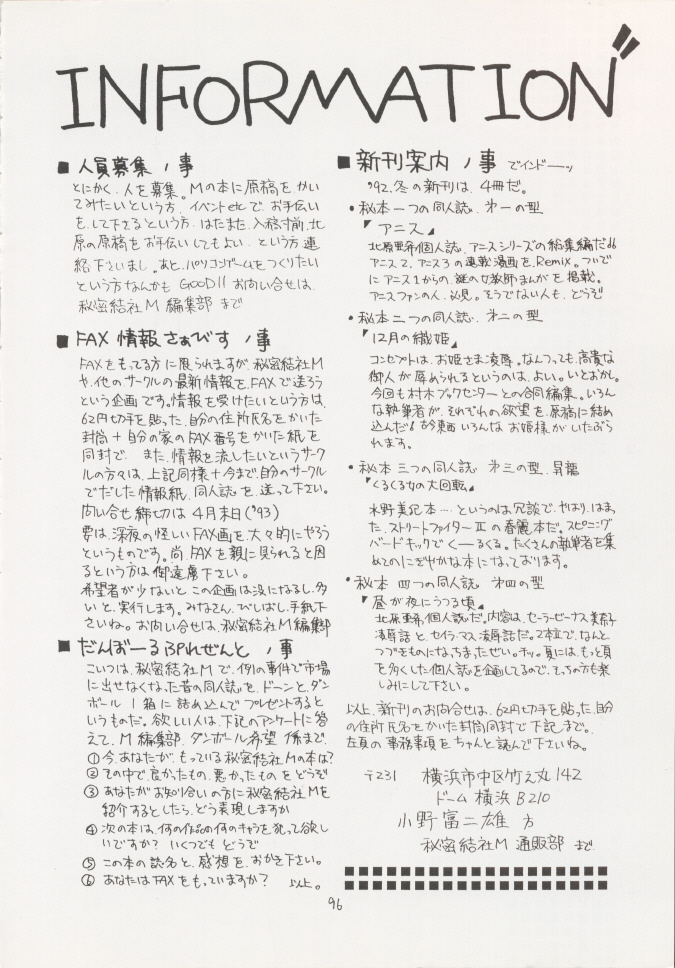 INFORMATION
■ 人員募集ノ事
とにかく、人を募集。Mの本に原稿をかい
てみたいという方、イベントetcでお手伝い
をして下さるという方、はたまた、入稿寸前、北
原の原稿をお手伝いしてもよい、という方連
絡下さいまし。あと、パソコンゲームをつくりたい
という方なんかもGOOD!! お向い合せは、
秘密結社M 編集部まで
■ FAX 情報さぁびすノ事
FAXをもってる方に限られますが、秘密結社M
や、他のサークルの最新情報を、FAXで送ろう
という企画です。情報を受けたいという方は、
62円切手を貼った、自分の住所氏名をかいた
封筒+自分の家のFAX番号をかいた紙を
同封で、また、情報を流したいというサーク
ルの方々は、上記同様+今まで、自分のサークル
でだした情報紙、同人誌を、送って下さい。
向い合せ締切は4月末日('93)
要は、深夜の怪しいFAX画を、大々的にやろう
というものです。尚FAXを親に見られると困
るという方は御遠慮下さい。
希望者が少ないと、この企画は没になるし、多
いと、実行します。みなさん、びしばし、手紙下
さいね。お向い合せは、秘密結社M編集部
■ だんぼーるぷれぜんと ノ事
こいつは、秘密結社Mで、例の事件で市場
に出せなくなった昔の同人誌を、ドーンと、ダン
ボール1箱に詰め込んでプレゼントすると
いうものだ。欲しい人は、下記のアンケートに答
えて、M編集部、ダンボール希望係まで。
①今、あなたが、もっている秘密結社Mの本は?
②その中で、良かったもの、悪かったものをどうぞ
③あなたがお知り合いの方に秘密結社Mを
紹介するとしたら、どう表現しますか
④次の本は、何の作品の何のキャラを犯って欲し
いですか? いくつでもどうぞ
⑤この本の誌名と、感想を、おかき下さい。
⑥あなたはFAXをもっていますか? 以上。
■ 新刊案内ノ事 でインドーーッ
'92.冬の新刊は、4冊だ。
・秘本一つの同人誌、才一の型
『アニス』
北原亜希個人誌、アニスシリーズの総集編だ!!
アニス2、アニス3の連載漫画を、Remix。ついで
にアニス1からの、謎の女教師まんがを掲載。
アニスファンの人、必見。そうでない人も、どうぞ
・秘本二つの同人誌、才二の型
『12月の織姫』
コンセプトは、お姫さま凌辱。なんつっても、高貴な
御人が辱められるというのは、よい。いとおかし。
今回も村木ブックセンターとの合同編集。いろん
な執筆者が、それぞれの欲望を、原稿に結め
込んだ!! 古今東西いろんなお姫様がいたぶら
れます。
・秘本 三つの同人誌 才三の型、昇龍
『くるくる女の大回転』
水野美紀本‥‥というのは冗談で、やはり、はまっ
た、ストリートファイターⅡの春麗本だ。スピニング
バードキックでくーるくる。たくさんの執筆者を集
めてのにぎやかな本になっております。
・秘本 四つの同人誌 才四の型
『昼が夜にうつる頃』
北原亜希個人誌だ。内容は、セーラービーナス美奈子
凌辱話と、セイラ・マス凌辱話だ。2本立で、なんと
つづきものになっちまった、ぜい。チッ。夏には、もっと頁
を多くした個人誌を企画してるので、そっちの方も楽
しみにして下さい。
以上、新刊のお向合せは、62円切手を貼った、自分
の住所氏名をかいた封筒同封で下記まで。
左頁の事務事項をちゃんと読んで下さいね。
〒231 横浜市中区竹之丸142
ドーム横浜B210
小野富二雄方
秘密結社M 通販部まで
96